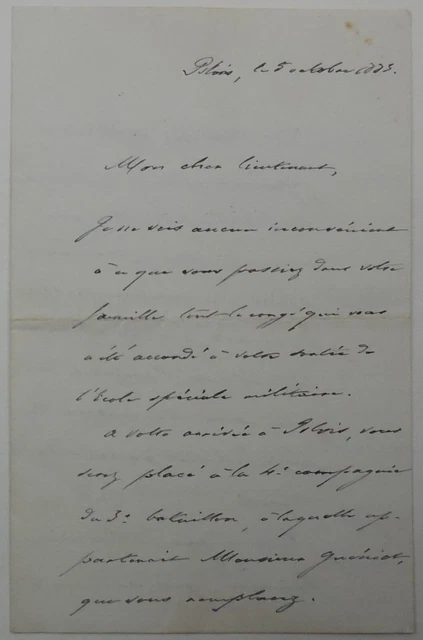 Blois, le 5 octobre 1883.
Mon cher lieutenant,
Je ne vois aucun inconvénient
à ce que vous passiez dans votre
famille tout le congé qui vous
a été accordé à votre sortie de
l'École spéciale militaire.
A votre arrivée à Blois, vous
serez placé à la 4e compagnie
du 3e bataillon, à laquelle ap-
partenait Monsieur
que vous remplacez.